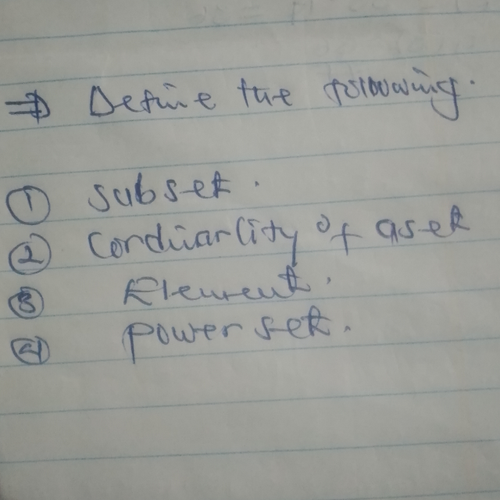 ⇒ Define the following.
① Subset.
② Cordinarlity of a set
③ Element.
④ power set.